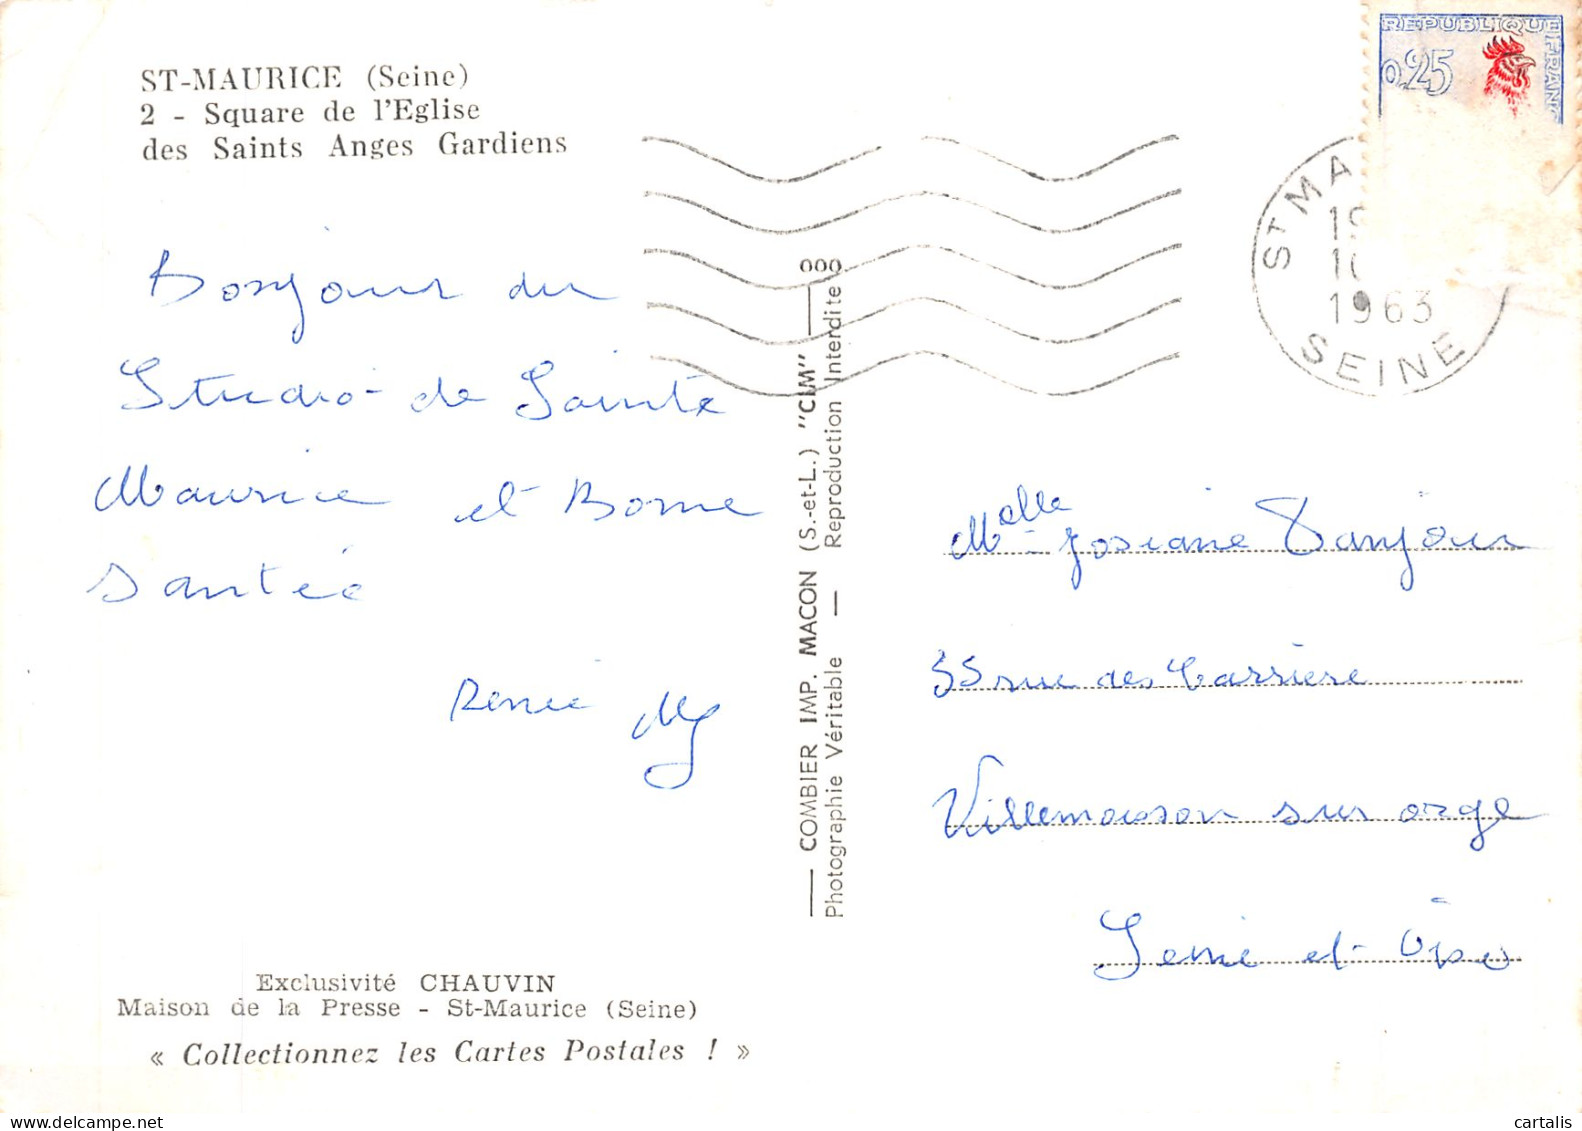 ST-MAURICE (Seine)
2 - Square de l'Eglise
des Saints Anges Gardiens
Bonjour du
Studio de Sainte
Maurice et Bonne
Santée
Renée
Exclusivité CHAUVIN
Maison de la Presse - St-Maurice (Seine)
« Collectionnez les Cartes Postales ! »
COMBIER IMP. MACON (S.-et-L.) "CIM"
Photographie Véritable — Reproduction Interdite
REPUBLIQUE FRAN
0,25
ST MA
1963
SEINE
Melle Josiane Tanjour
55 rue des Carriere
Villemoisson sur orge
Seine et Oise
cartalis